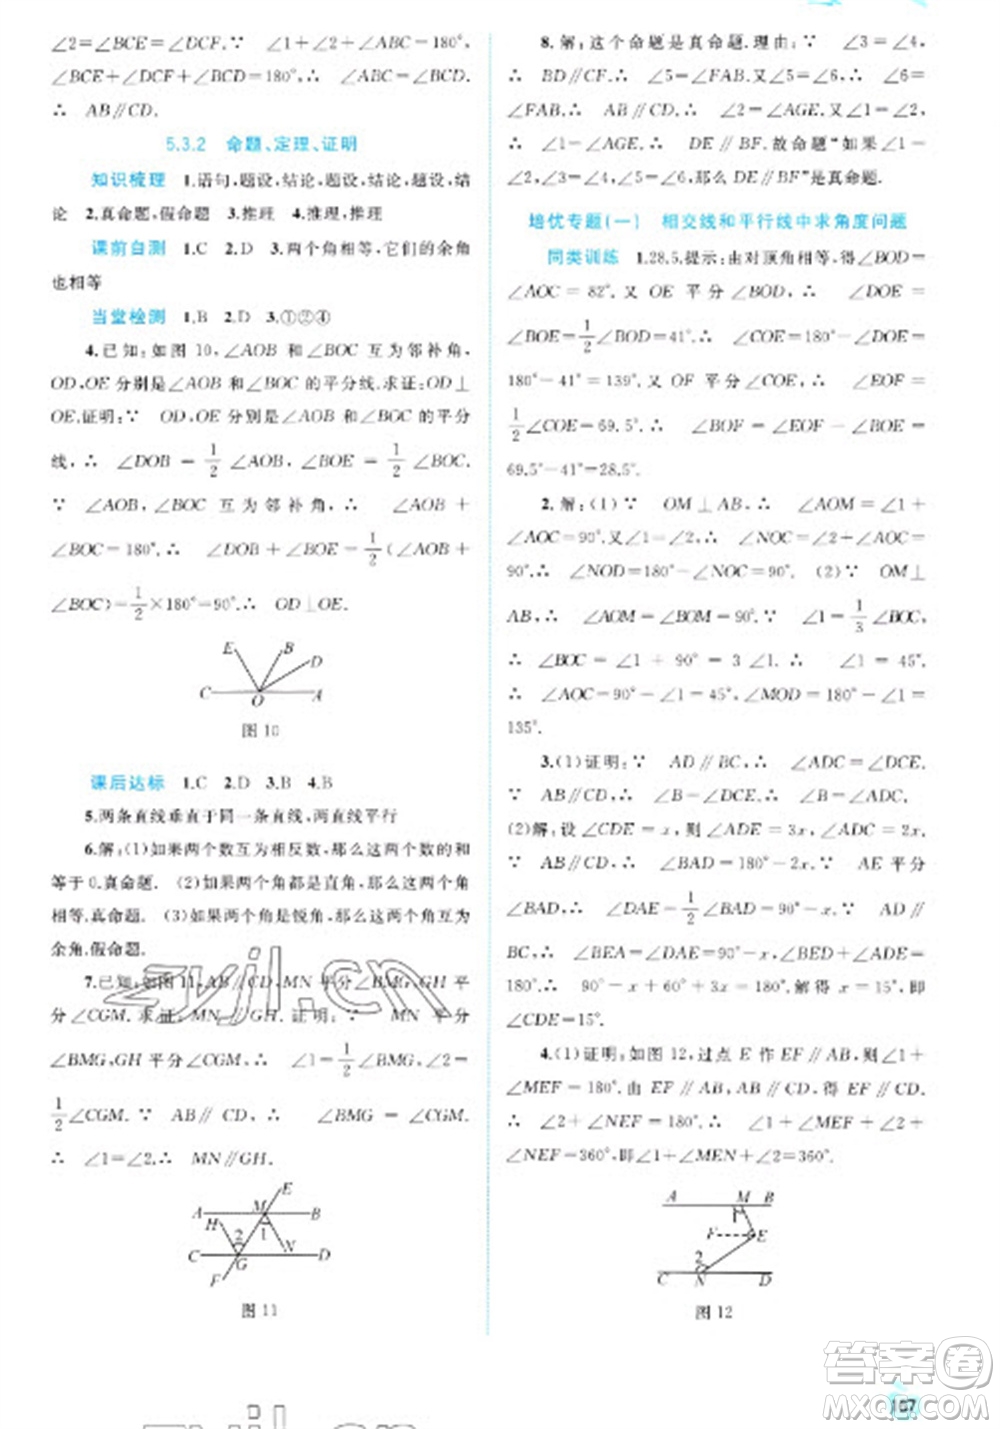 ∠2=∠BCE=∠DCF.∵ ∠1+∠2+∠ABC=180°,
∠BCE+∠DCF+∠BCD=180°,∴ ∠ABC=∠BCD.
∴ AB∥CD.
5.3.2 命题、定理、证明
知识梳理 1.语句,题设,结论,题设,结论,题设,结
论 2.真命题,假命题 3.推理 4.推理,推理
课前自测 1.C 2.D 3.两个角相等,它们的余角
也相等
当堂检测 1.B 2.D 3.①②④
4.已知:如图 10,∠AOB 和∠BOC 互为邻补角,
OD,OE 分别是∠AOB 和∠BOC 的平分线.求证:OD⊥
OE.证明:∵ OD,OE 分别是∠AOB 和∠BOC 的平分
线,∴ ∠DOB = 1/2 ∠AOB, ∠BOE = 1/2 ∠BOC.
∵ ∠AOB,∠BOC 互为邻补角,∴ ∠AOB +
∠BOC=180°,∴ ∠DOB+∠BOE=1/2(∠AOB+
∠BOC)=1/2×180°=90°.∴ OD⊥OE.
E B D
C O A
图 10
课后达标 1.C 2.D 3.B 4.B
5.两条直线垂直于同一条直线,两直线平行
6.解:(1)如果两个数互为相反数,那么这两个数的和
等于0.真命题. (2)如果两个角都是直角,那么这两个角
相等.真命题. (3)如果两个角是锐角,那么这两个角互为
余角.假命题.
7.已知:如图 11,AB∥CD,MN 平分∠BMG,GH 平
分∠CGM. 求证:MN∥GH. 证明:∵ MN 平分
∠BMG,GH 平分∠CGM,∴ ∠1=1/2∠BMG,∠2=
1/2∠CGM. ∵ AB∥CD,∴ ∠BMG=∠CGM,
∴ ∠1=∠2.∴ MN∥GH.
E
A H M B
2 1
C G N D
F
图 11
8.解:这个命题是真命题.理由:∵ ∠3=∠4,
∴ BD∥CF.∴ ∠5=∠FAB.又∠5=∠6,∴ ∠6=
∠FAB,∴ AB∥CD,∴ ∠2=∠AGE.又∠1=∠2,
∴ ∠1=∠AGE,∴ DE∥BF.故命题“如果∠1=
∠2,∠3=∠4,∠5=∠6,那么 DE∥BF”是真命题.
培优专题(一) 相交线和平行线中求角度问题
同类训练 1.28.5.提示:由对顶角相等,得∠BOD=
∠AOC=82°.又 OE 平分∠BOD,∴ ∠DOE =
∠BOE=1/2∠BOD=41°,∴ ∠COE=180°-∠DOE=
180°-41°=139°.又 OF 平分∠COE,∴ ∠EOF=
1/2∠COE=69.5°,∴ ∠BOF=∠EOF-∠BOE=
69.5°-41°=28.5°.
2.解:(1)∵ OM⊥AB,∴ ∠AOM=∠1+
∠AOC=90°.又∠1=∠2,∴ ∠NOC=∠2+∠AOC=
90°.∴ ∠NOD=180°-∠NOC=90°. (2)∵ OM⊥
AB,∴ ∠AOM=∠BOM=90°.∵ ∠1=1/3∠BOC,
∴ ∠BOC=∠1 + 90°= 3 ∠1.∴ ∠1= 45°,
∴ ∠AOC=90°-∠1=45°,∠MOD=180°-∠1=
135°.
3.(1)证明:∵ AD∥BC,∴ ∠ADC=∠DCE.
∵ AB∥CD,∴ ∠B=∠DCE,∴ ∠B=∠ADC.
(2)解:设∠CDE=x,则∠ADE=3x,∠ADC=2x.
∵ AB∥CD,∴ ∠BAD=180°-2x.∵ AE 平分
∠BAD,∴ ∠DAE=1/2∠BAD=90°-x.∵ AD∥
BC,∴ ∠BEA=∠DAE=90°-x,∴ ∠BED+∠ADE=
180°,∴ 90°-x+60°+3x=180°.解得x=15°,即
∠CDE=15°.
4.(1)证明:如图 12,过点 E 作 EF∥AB,则∠1+
∠MEF=180°.由 EF∥AB,AB∥CD,得 EF∥CD,
∴ ∠2+∠NEF=180°,∴ ∠1+∠MEF+∠2+
∠NEF=360°,即∠1+∠MEN+∠2=360°.
A M B
1
F E
2
C N D
图 12
zyjl.cn
答案圈
MXQE.COM
107